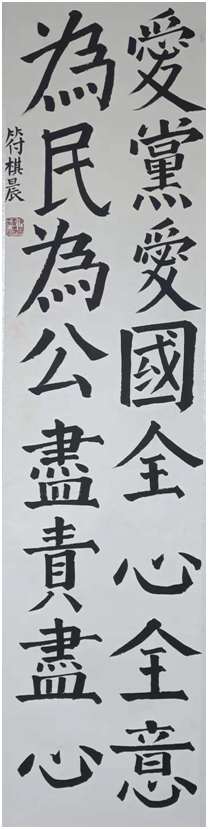 愛黨愛國全心全意
為民為公盡責盡心
符棋晨